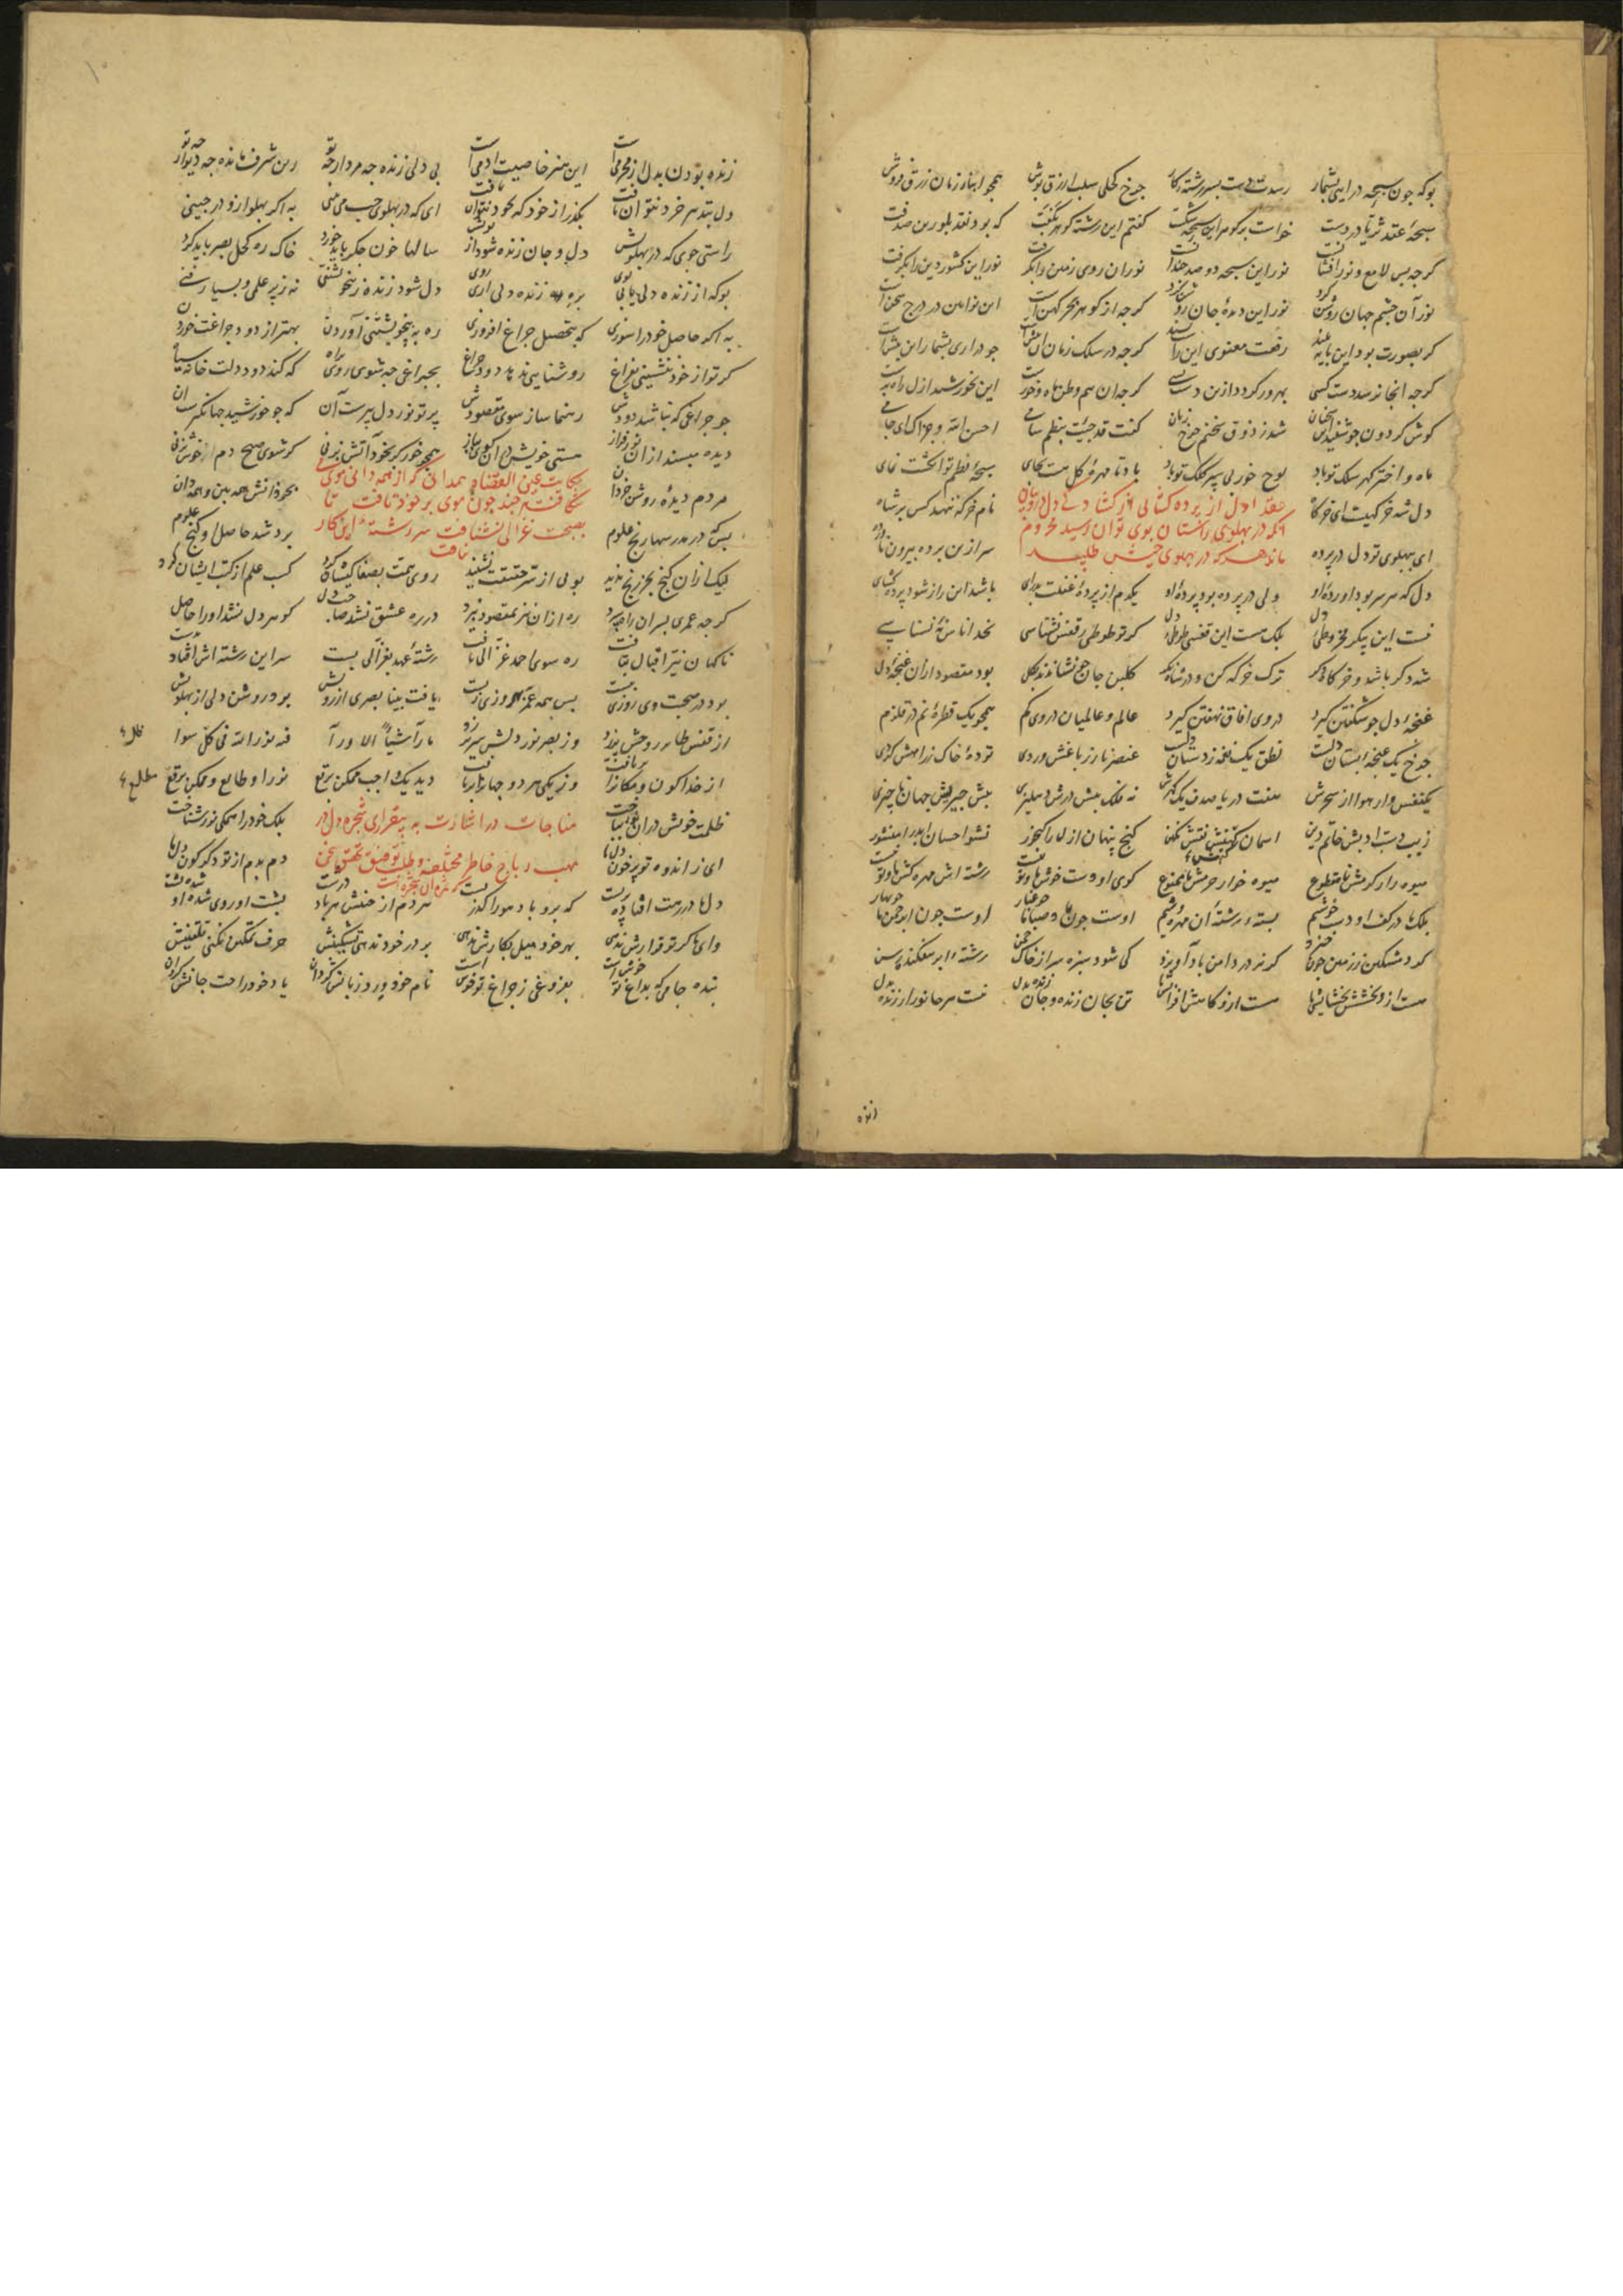 بوکه چون سبحه دراینی بشمار رسدت دست بسررشته کار چرخ کحلی سلب ازرق پوش همچو ابناء زمان زرق فروش
سبحهٔ عقد ثریا در دست خواست بر گوهر این سبحه شکست گفتم این رشته گوهر بکفت که بود نقد بلورین صدفت
گرچه بس لامع و نور افشانست نور این سبحه دو صد چندانست نور آن روی زمین را بگرفت نور این کشور دین را بگرفت
نور آن چشم جهان روشن کرد نور این دیدهٔ جان روشن کرد گرچه از گوهر بحر کهن است این نو آیین در درج سخن است
گر بصورت بود این پایه بلند رفعت معنوی این را گرچه در سلک زمان آن بیش است چو در آری بشمار این بیش است
گرچه آنجا نرسد دست کسی بهره ور گردد ازین دست بسی گرچه آن هم وطن ماه و خورست این بخورشید ازل راه برست
گوش گردون چو شنید این سخنان شد ز ذوق سخنم چرخ زنان گفت قد جئت بنظم سامی احسن الله جزاک ای جامی
ماه و اختر گهر سلک تو باد لوح خور بی سپر کلک تو باد باد تا مهرهٔ گل هست بجای سبحهٔ نظم تو انگشت نمای
عقد اول از پرده گشایی از دل
آنکه در پهلوی راستان بوی توان رسید محروم
ماند هرکه در پهلوی خیش طلبید
دل شه خرگهیست ای خرگاه نام خرگه ننهد کس بر شاه
ای بپهلوی تو دل در پرده سر ازین پرده بیرون ناورده
دل که سر بر بود او رده او ولی در پرده بود پرده او یکدم از پردهٔ غفلت بدر آی باشد این راز شود پرده گشای
نیست این پیکر مخروطی دل بلک هست این قفس و طوطی دل گر تو طوطی ز قفس نشناسی بخدا ناس نهٔ نسناسی
شه دگر باشد و خرگاه دگر ترک خرگه کن و در شاه نگر گلبن جان چو نشاندند بگل بود مقصود از آن غنچهٔ دل
غنچهٔ دل چو شکفتن گیرد در وی آفاق نهفتن گیرد عالم و عالمیان در وی گم همچو یک قطرهٔ نم در قلزم
چرخ یک غنچه ز بستان دلست نطق یک نغمه ز دستان دلست عنصر نار ز باغش وردی تودهٔ خاک ز راهش گردی
یکنفس وار هوا از سحرش هفت دریا صدف یک گهرش نه فلک پیش درش دهلیزی پیش چیزیش جهان ناچیزی
زیب دست ادبش خاتم دین آسمان نقش نگین گنج پنهان ازل را گنجور نشر احسان ابد را منشور
میوه دار کرمش نامقطوع میوه خوار حرمش ناممنوع کوی او دوست خوش ما و تو رشته اش مهره کش ما و تو
بلک ما در کف او دست خوشیم بستهٔ رشتهٔ آن مهره کشیم اوست چون باد صبا ما چو غبار اوست چون ابر چمن ما چو بهار
گرد مسکین ز زمین چون خیزد گر نه در دامن باد آویزد کی شود سبزه سر از خاک چمن رشته ابر نیفکنده رسن
هست از و بخشش بخشایشها هست از و کاهش افزایشها تن بجان زنده و جان زنده بدل نیست هر جانور ارزنده بدل
زنده
۱۰
زنده بودن بدل از محرمی است این هنر خاصیت آدمی است بی دلی زنده چه مردار چه تو زین شرف مانده چه دیوار چه تو
دل بتدبیر خرد نتوان یافت بگذر از خود که بخود نتوان یافت ای که در پهلوی چپ می بینی به اگر پهلو ازو در چینی
راستی جوی که در پهلویش دل و جان زنده شود از بویش سالها خون جگر باید خورد خاک ره کحل بصر باید کرد
بوکه از زنده دلی یابی بوی بره زنده دلی آری روی دل شود زنده ز بیخویشتنی نه ز پر علمی و بسیار فنی
به اگر حاصل خود را سوزی که بتحصیل چراغ افروزی ره به بیخویشتنی آوردن بهتر از دود چراغت خوردن
گر تو از خود ننشینی بفراغ روشنایی ندهد دود چراغ بچراغی چه شوی روی براه که کند دود دلت خانه سیاه
جو چراغی که نباشد دودش رهنما ساز سوی مقصودش پرتو نور دل پیرست آن که چو خورشید جهانگیرست آن
دیده مپسند از آن نور فراز هستی خویش در آن کوی بباز همچو خور گر بخود آتش بزنی گر شوی صبح دم از خوش زنی
حکایت عین القضاة همدانی که از همه دانی موی
شکافت هر چند چون موی بر خود تافت تا
بصحبت غزالی نشتافت سر رشتهٔ این کار
نیافت
مردم دیدهٔ روشن خردان بحر دانش همه بین و همه دان
بس که در مدرسها رنج علوم برد شد حاصل او گنج علوم
لیک از آن گنج بجز رنج ندید بویی از سر حقیقت نشنید روی همت بصفا کیشان کرد کسب علم از کتب ایشان کرد
گرچه عمری بسر آن راه سپرد ره از آن نیز بمقصود نبرد در ره عشق نشد صاحب دل گوهر دل نشد او را حاصل
ناگهان نیر اقبال بتافت ره سوی احمد غزالی یافت رشتهٔ عهد بغزالی بست سر این رشته اش افتاد بدست
بود در صحبت وی روزی بیست بس همه عمر بهروزی زیست یافت بینا بصری از رویش بود روشن دلی از پهلویش
از قفس طایر روحش پر زد وز بصر نور دلش سر بر زد ما رآ شیأ الا ورآ فیه نور الله فی کل سوا
از خدا کون و مکان را دریافت وز یکی هر دو جهان را دریافت دید یک واجب ممکن برقع نور او طالع و ممکن برقع مطلع
ظلمت خویش در آن انوار باخت بلک خود را همگی نور شناخت
مناجات در اشارت به بیقراری شجره دل در
مهب ریاح خواطر مختلفه و طلب توفیق تحقق سخن
که ثمره آن شجره است
ای ز اندوه تو پر خون دلها دم بدم از تو دگرگون دلها
دل ما در رهت افتاده پریست که برو باد هوا را گذریست هر دم از جنبش هر باد درشت پشت او روی شده او پشت
وای ما گر تو قرارش ندهی بهر خود میل بکارش ندهی بر در خود ندهی تسکینش حرف تمکین نکنی تلقینش
بنده جامی که بداغ تو خوش است بفروغی ز چراغ تو خوش است نام خود ورد زبانش گردان یاد خود راحت جانش گردان